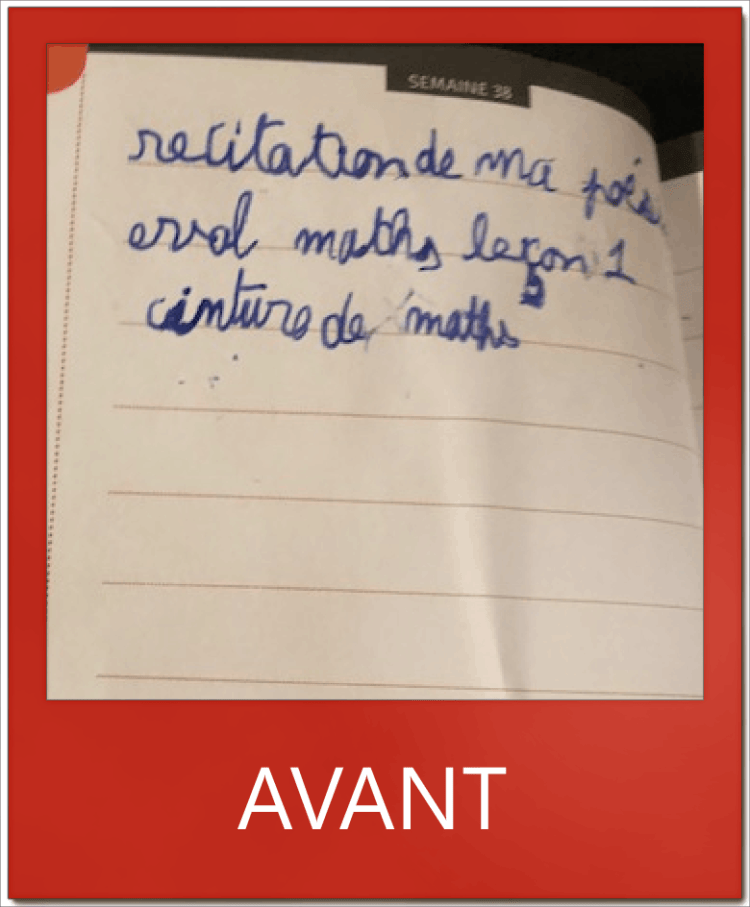 SEMAINE 38
recitation de ma poés
eval maths leçon 1
ceinture de maths
AVANT